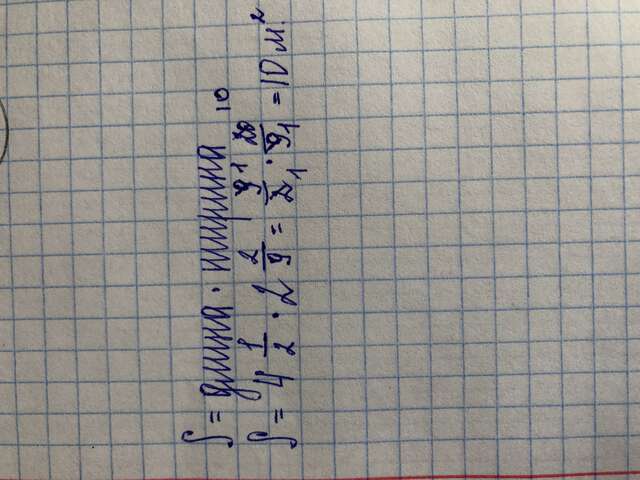 S = длина · ширина
S = 4 1/2 · 2 2/9 = 9/2 · 20/9 = 10 м²